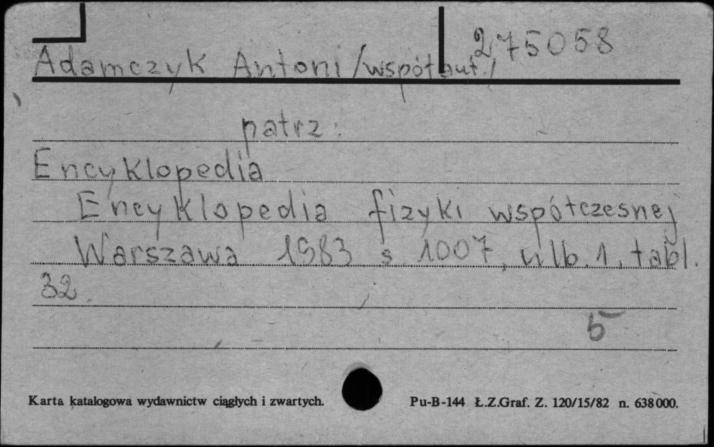 275058
Adamczyk Antoni /współaut./
patrz:
Encyklopedia
Encyklopedia fizyki współczesnej
Warszawa 1983 s 1007, nlb. 1, tabl.
32.
b
Karta katalogowa wydawnictw ciągłych i zwartych. Pu-B-144 Ł.Z.Graf. Z. 120/15/82 n. 638000.